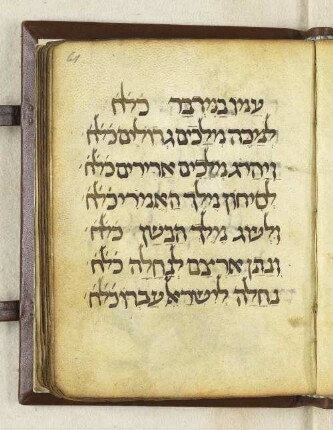 64
עמו במדבר כל״ח
למכה מלכים גדולים כל״ח
ויהרג מלכים אדירים כל״ח
לסיחון מלך האמרי כל״ח
ולעוג מלך הבשן כל״ח
ונתן ארצם לנחלה כל״ח
נחלה לישראל עבדו כל״ח